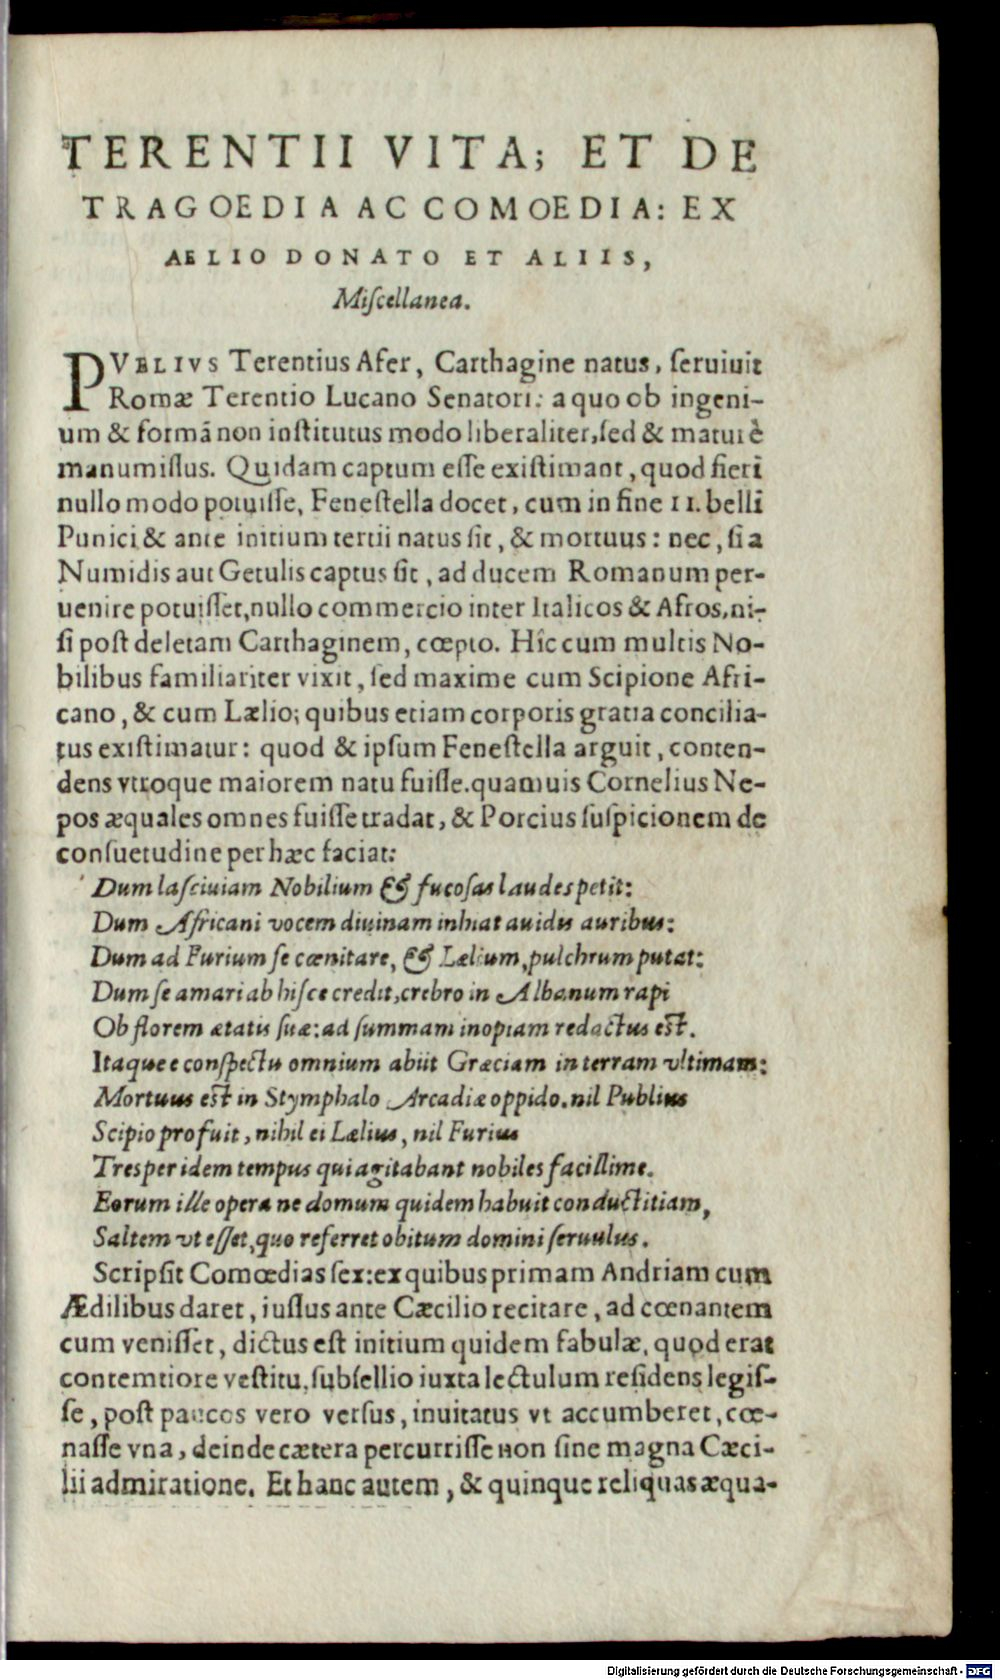 TERENTII VITA; ET DE
TRAGOEDIA AC COMOEDIA: EX
AELIO DONATO ET ALIIS,
Miſcellanea.
PVBLIVS Terentius Afer, Carthagine natus, ſeruiuit
Romæ Terentio Lucano Senatori: a quo ob ingeni-
um & formā non inſtitutus modo liberaliter, ſed & maturè
manumiſſus. Quidam captum eſſe exiſtimant, quod fieri
nullo modo potuiſſe, Feneſtella docet, cum in fine II. belli
Punici & ante initium tertii natus ſit, & mortuus: nec, ſi a
Numidis aut Getulis captus ſit, ad ducem Romanum per-
uenire potuiſſet, nullo commercio inter Italicos & Afros, ni-
ſi poſt deletam Carthaginem, cœpto. Hîc cum multis No-
bilibus familiariter vixit, ſed maxime cum Scipione Afri-
cano, & cum Lælio; quibus etiam corporis gratia concilia-
tus exiſtimatur: quod & ipſum Feneſtella arguit, conten-
dens vtroque maiorem natu fuiſſe. quamuis Cornelius Ne-
pos æquales omnes fuiſſe tradat, & Porcius ſuſpicionem de
conſuetudine per hæc faciat:
Dum laſciuiam Nobilium & fucoſas laudes petit:
Dum Africani vocem diuinam inhiat auidis auribus:
Dum ad Furium ſe cœnitare, & Lælium, pulchrum putat:
Dum ſe amari ab hiſce credit, crebro in Albanum rapi
Ob florem ætatis ſuæ: ad ſummam inopiam redactus eſt.
Itaque e conſpectu omnium abiit Græciam in terram vltimam:
Mortuus eſt in Stymphalo Arcadiæ oppido. nil Publius
Scipio profuit, nihil ei Lælius, nil Furius
Tres per idem tempus qui agitabant nobiles facillime.
Eorum ille opera ne domum quidem habuit conductitiam,
Saltem vt eſſet, quo referret obitum domini ſeruulus.
Scripſit Comœdias ſex: ex quibus primam Andriam cum
Ædilibus daret, iuſſus ante Cæcilio recitare, ad cœnantem
cum veniſſet, dictus eſt initium quidem fabulæ, quod erat
contemtiore veſtitu, ſubſellio iuxta lectulum reſidens legiſ-
ſe, poſt paucos vero verſus, inuitatus vt accumberet, cœ-
naſſe vna, deinde cætera percurriſſe non ſine magna Cæci-
lii admiratione. Et hanc autem, & quinque reliquas æqua-
Digitalisierung gefördert durch die Deutsche Forschungsgemeinschaft - DFG